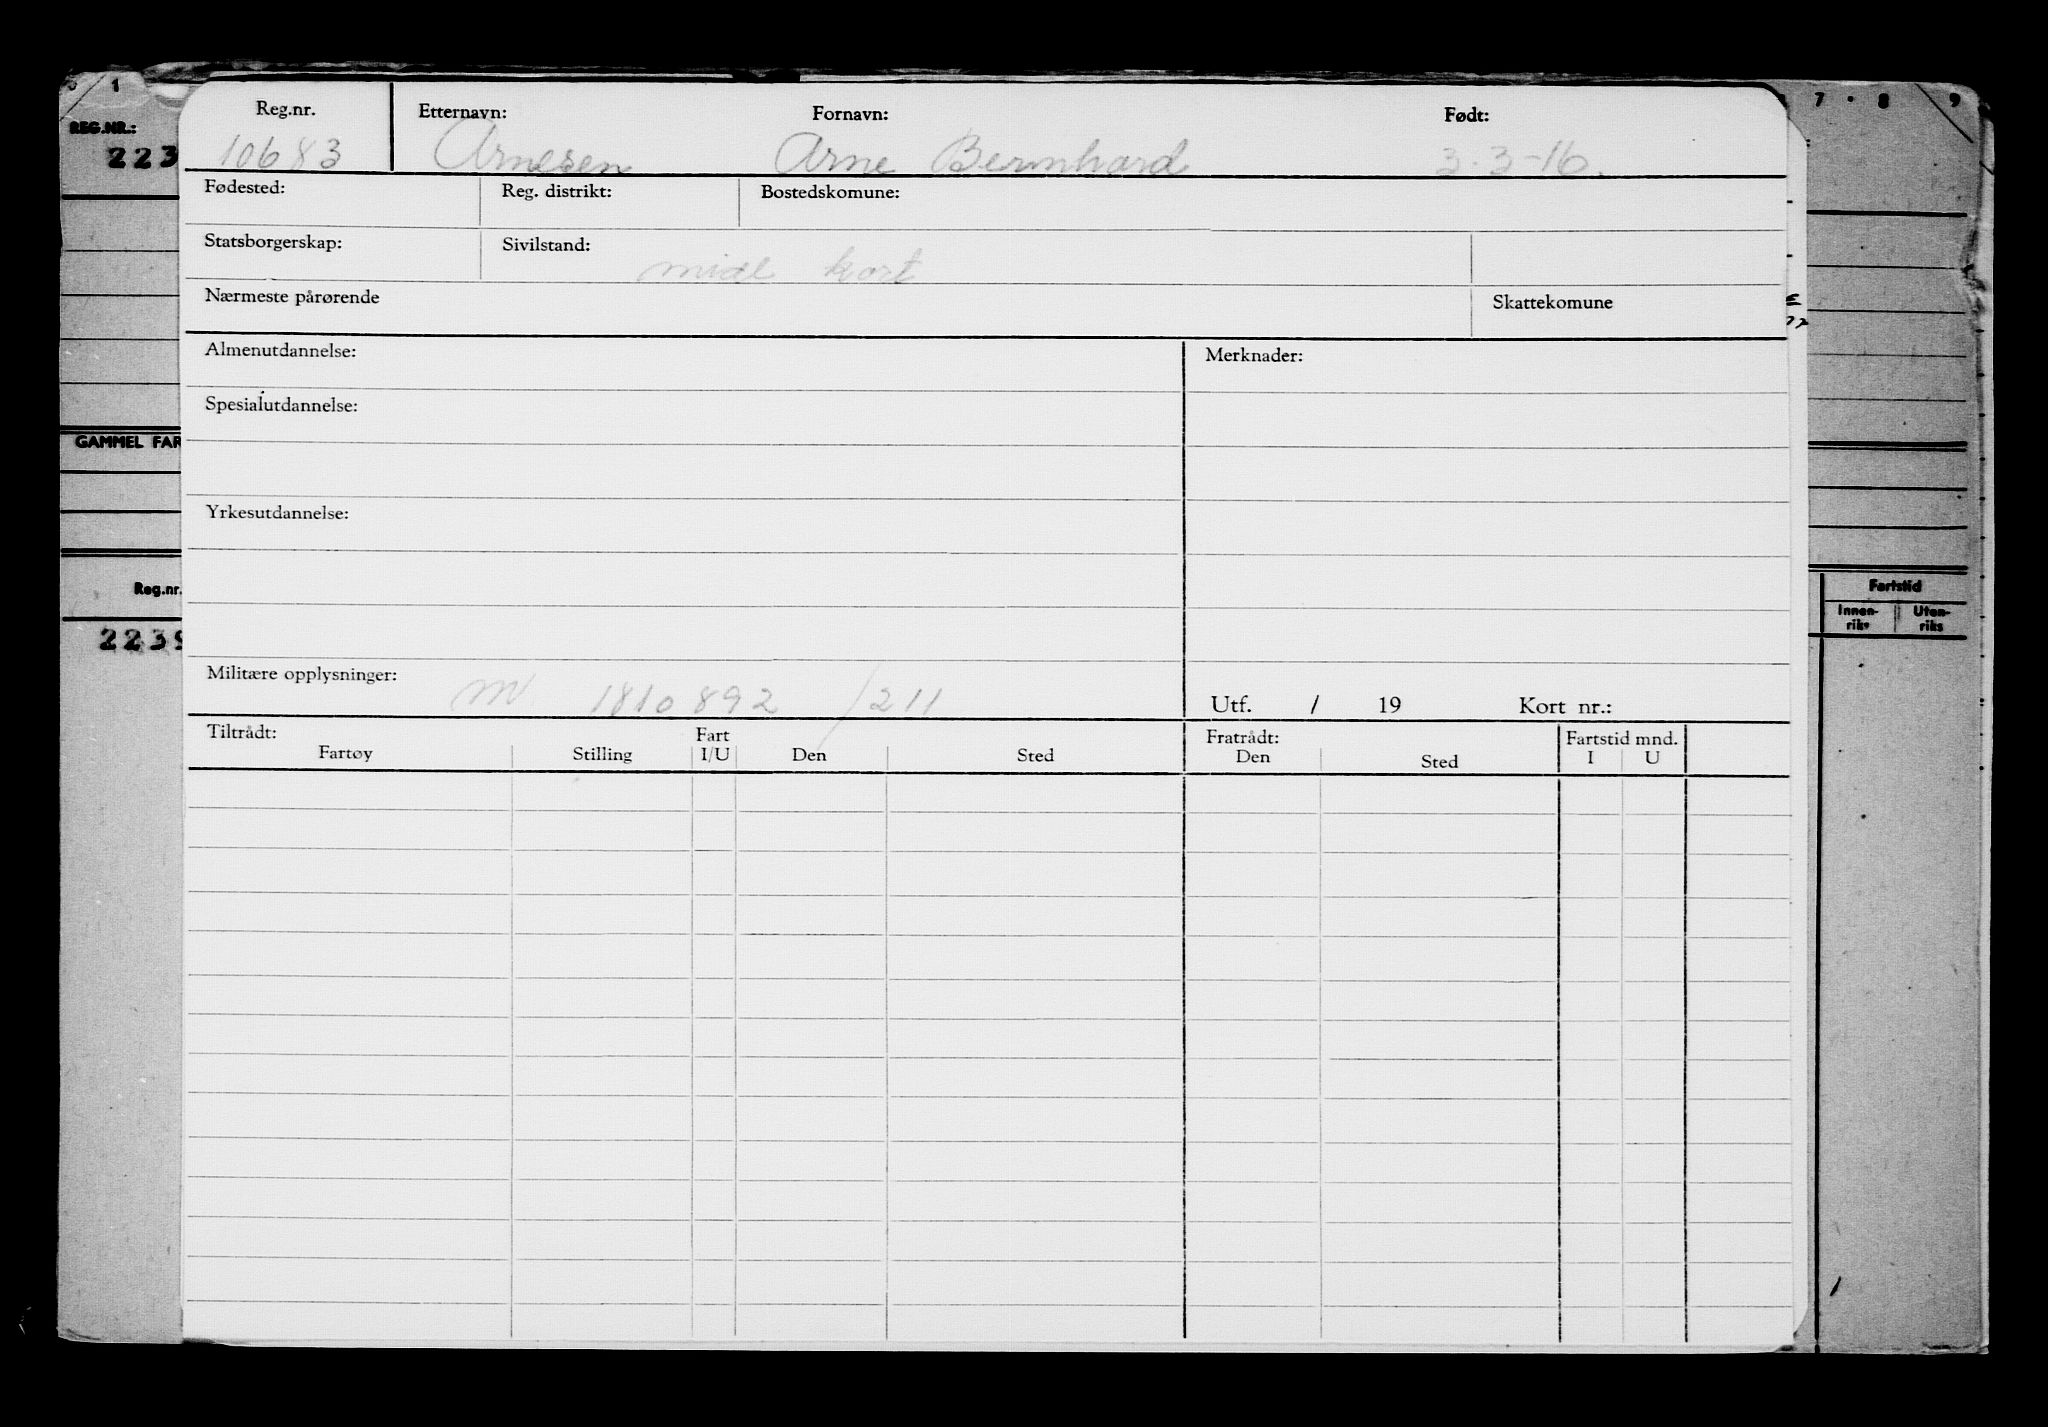 1 7 8 9
REG.NR.:
223
Reg.nr. Etternavn: Fornavn: Født:
10683 Arnesen Arne Bernhard 3-3-16.
Fødested: Reg. distrikt: Bostedskomune:
Statsborgerskap: Sivilstand:
midl kort
Nærmeste pårørende Skattekomune
Almenutdannelse: Merknader:
Spesialutdannelse:
GAMMEL FAR
Yrkesutdannelse:
Reg.nr. Fartstid
Innen- Uten-
riks riks
2239
Militære opplysninger: M 1810892 /211
Utf. / 19 Kort nr.:
Tiltrådt: Fart Fratrådt: Fartstid mnd.
Fartøy Stilling I/U Den Sted Den Sted I U